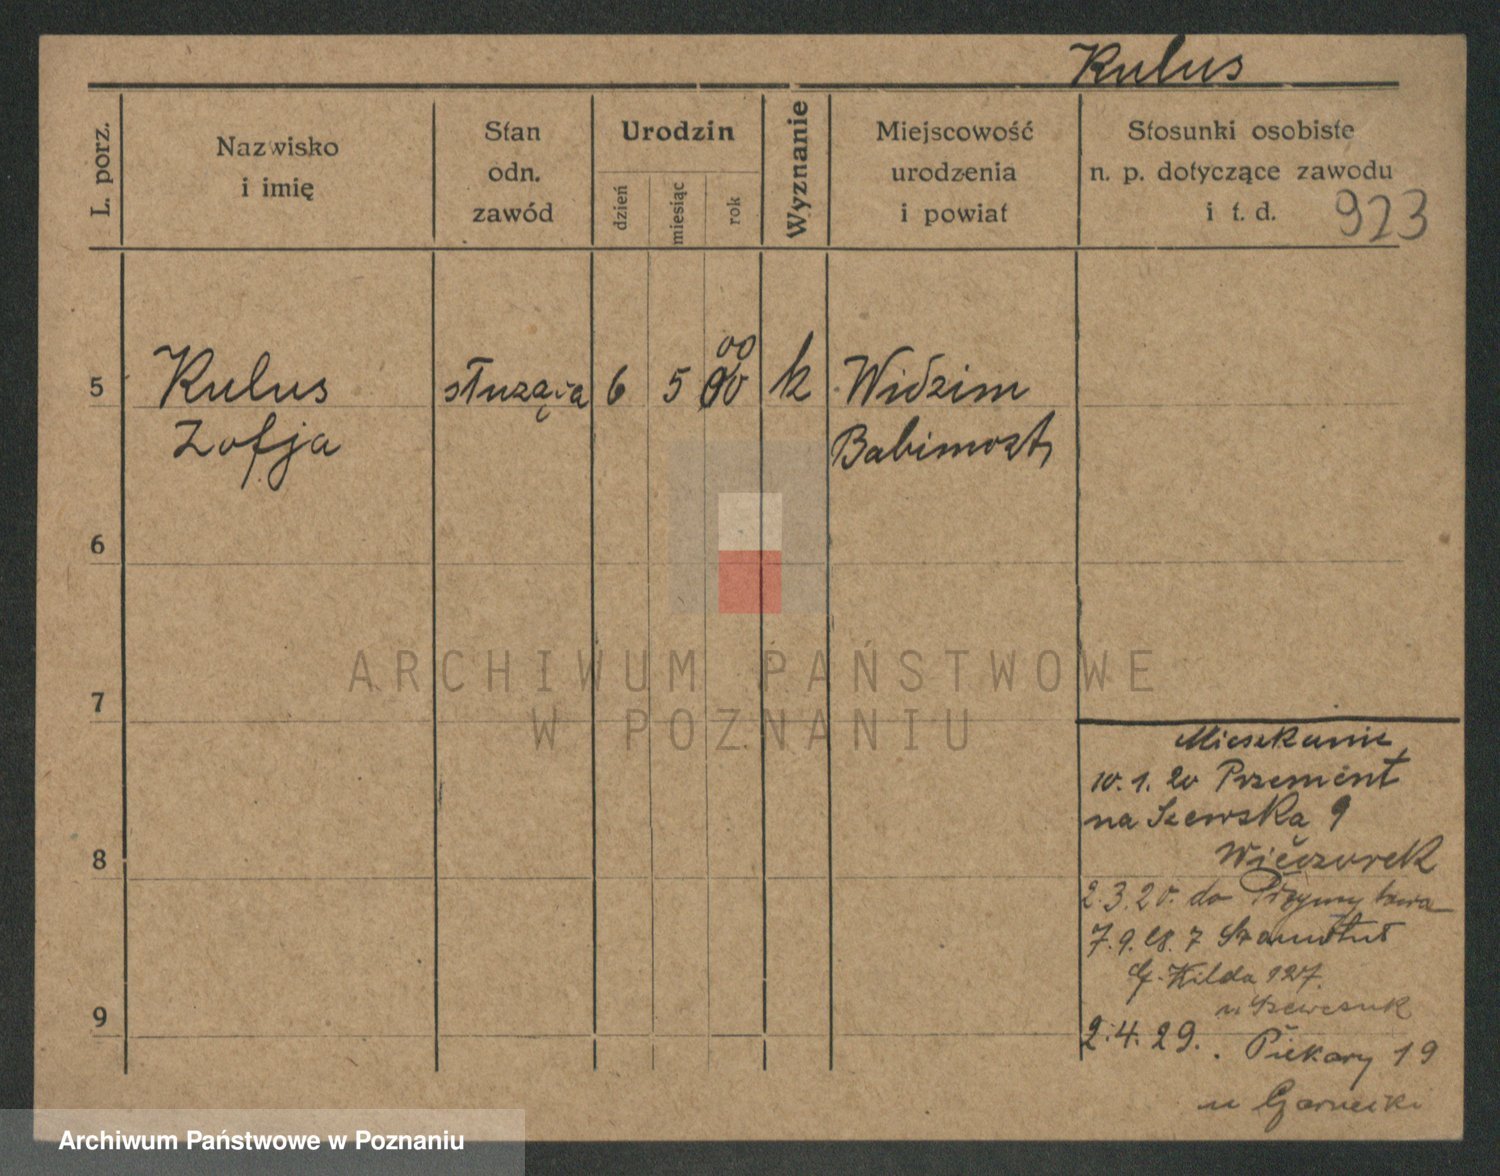 Kulus
L. porz.
Nazwisko
i imię
Stan
odn.
zawód
Urodzin
dzień
miesiąc
rok
Wyznanie
Miejscowość
urodzenia
i powiat
Stosunki osobiste
n. p. dotyczące zawodu
i t. d.
923
00
5 Kulus służąca 6 5 00 k Widzim
Zofja Babimost
6
7
8
9
ARCHIWUM PAŃSTWOWE
W POZNANIU
Mieszkanie
10. 1. 20 Przement
na Szewska 9
Wieczorek
2.3.20. do
7.9.28. z
G. Wilda 127.
u Szewczuk
2.4.29. Piekary 19
u
Archiwum Państwowe w Poznaniu